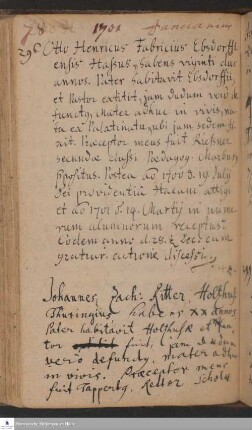 78 1701
29. Otto Henricus Fabricius Ebsdorffi
ensis Hassus, habens viginti duo
annos. Pater habitavit Ebsdorffii,
et Pastor extitit, jam dudum vero de
functus, Mater adhuc in vivis, na
ta ex Palatinatu, ubi jam sedem fi
xit. Præceptor meus fuit Kießner
secundæ classis Pædagog. Marburg
Præpositus. Postea ao 1700 d. 19. July
Dei providentiâ Halam attigi
et ao 1701 d. 19. Martij in nume
rum alumnorum receptus.
Eodem anno d. 28. cum
gratiar. actione discessi.
Johannes Zach: Ritter, Holthus.
Thuringius habens XX annos
Pater habitavit Holthusæ et Pas
tor fuit, jam dudum
vero defunct9, mater adhuc
in vivis. Præceptor meus
fuit Tappertg, Rector Scholæ